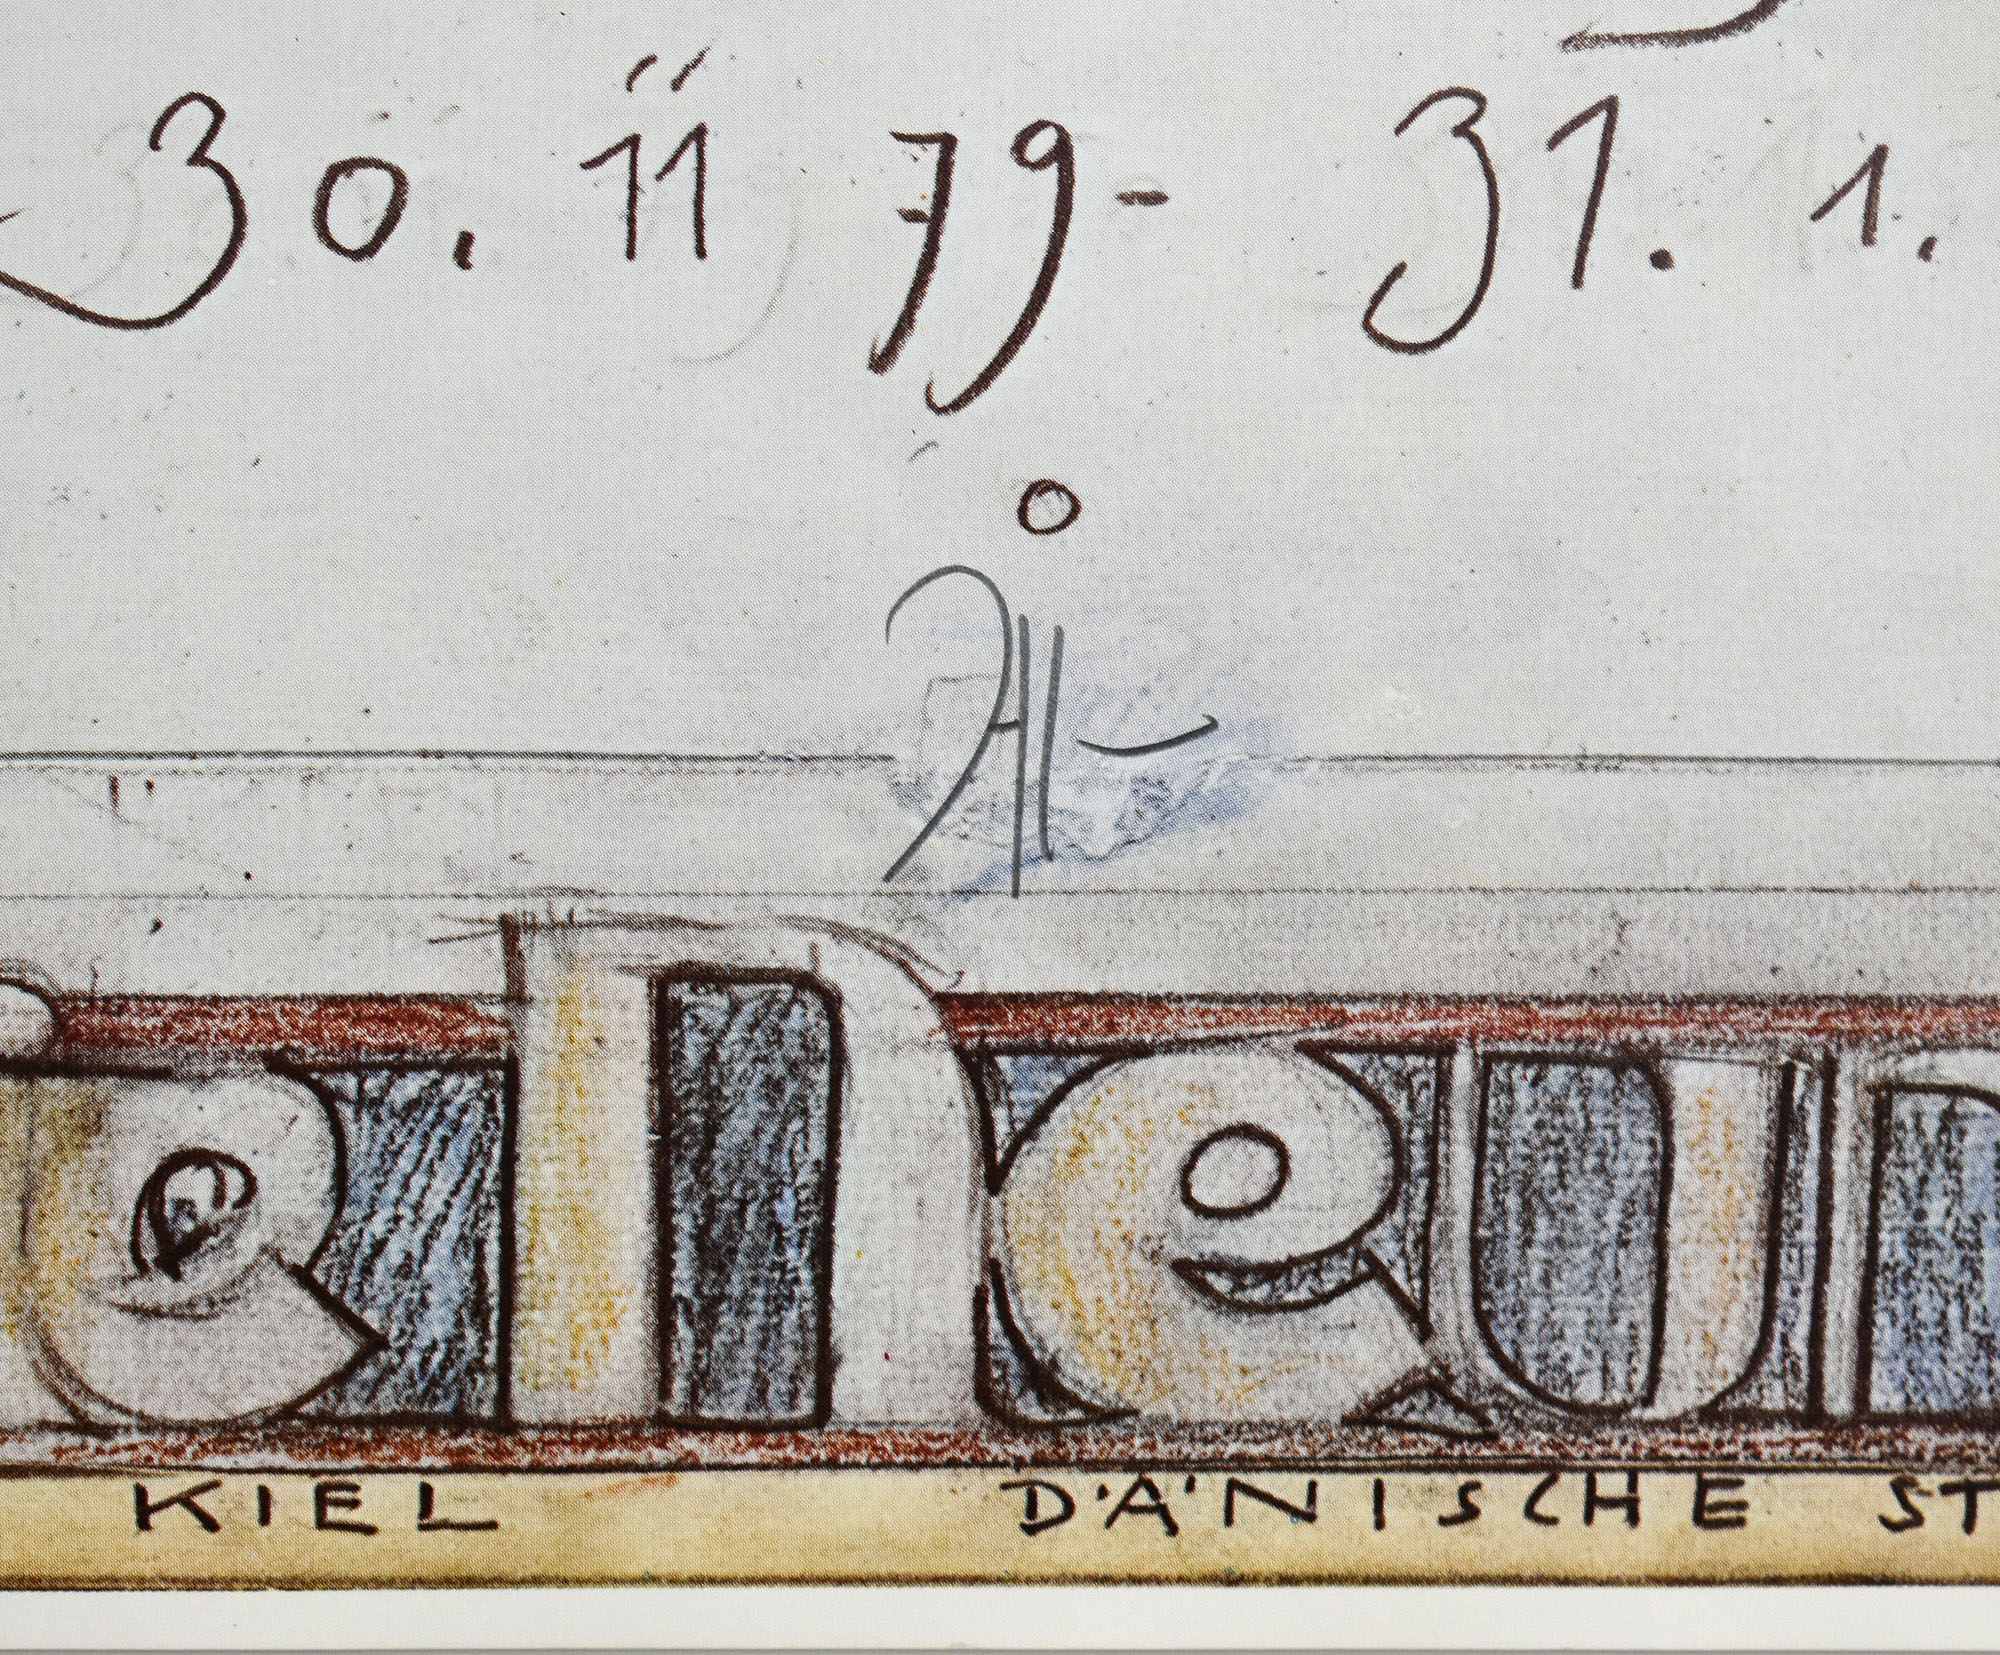 30. 11 79 - 31. 1.
eneun
KIEL DÄNISCHE ST